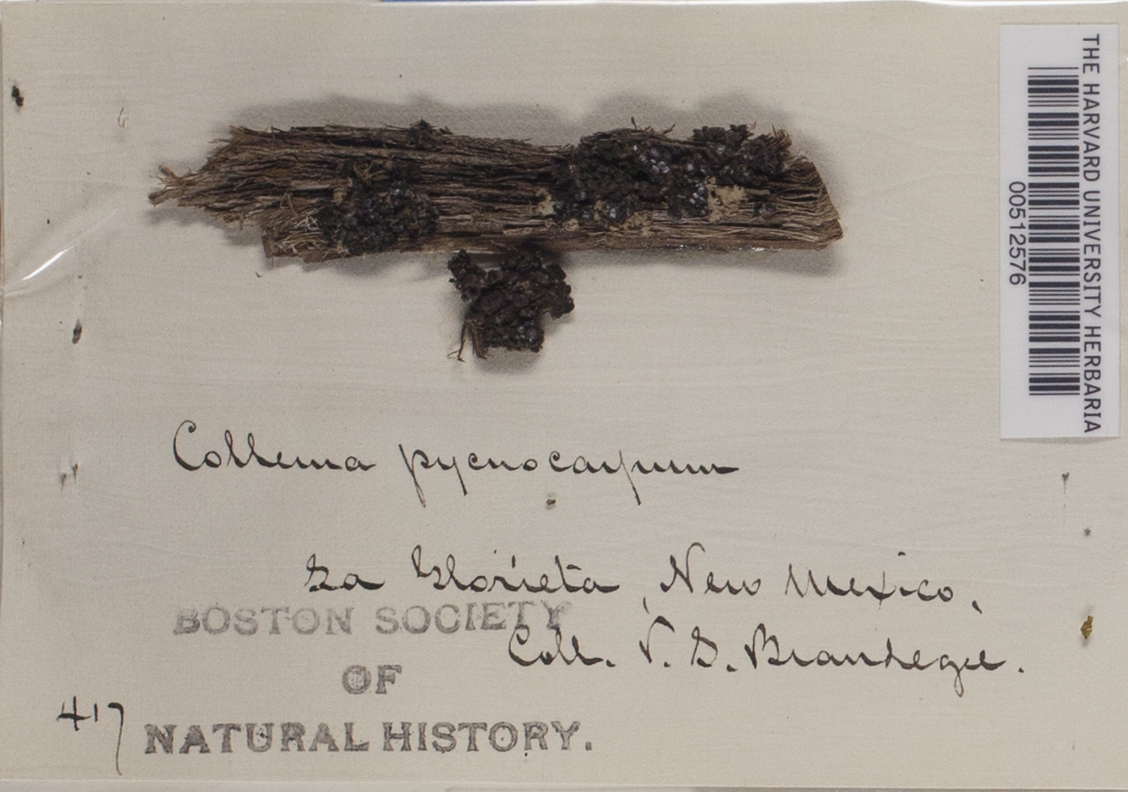 THE HARVARD UNIVERSITY HERBARIA
00512576
Collema pycnocarpum
La Glorieta, New Mexico,
BOSTON SOCIETY
Coll. T. S. Brandegee.
OF
417
NATURAL HISTORY.